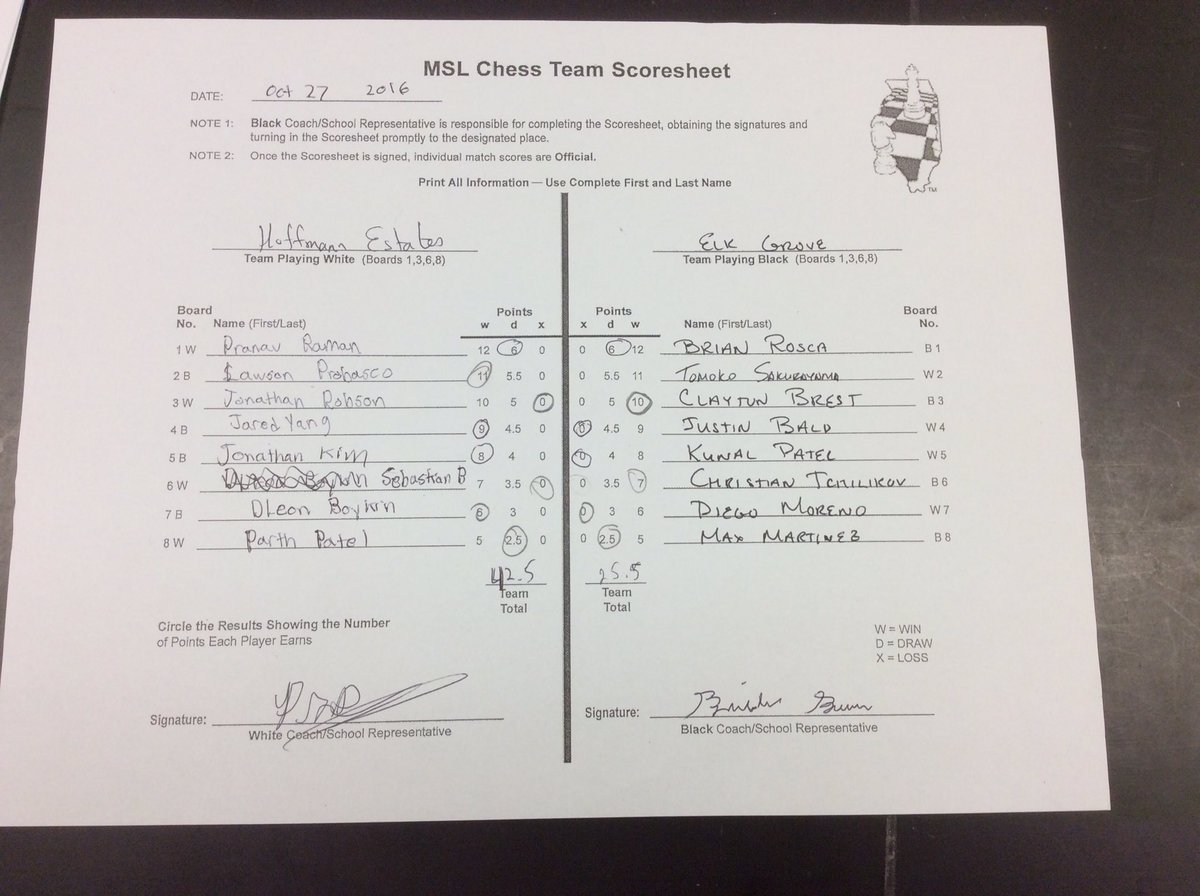 MSL Chess Team Scoresheet
DATE: Oct 27 2016
NOTE 1: Black Coach/School Representative is responsible for completing the Scoresheet, obtaining the signatures and
turning in the Scoresheet promptly to the designated place.
NOTE 2: Once the Scoresheet is signed, individual match scores are Official.
Print All Information — Use Complete First and Last Name
Hoffmann Estates ELK GROVE
Team Playing White (Boards 1,3,6,8) Team Playing Black (Boards 1,3,6,8)
Board Points Points Board
No. Name (First/Last) w d x x d w Name (First/Last) No.
1 W Pranav Raman 12 6 0 0 6 12 BRIAN ROSCA B 1
2 B Lawson Prohasco 11 5.5 0 0 5.5 11 TOMOKO W 2
3 W Jonathan Robson 10 5 0 0 5 10 CLAYTON BREST B 3
4 B Jared Yang 9 4.5 0 0 4.5 9 JUSTIN BALD W 4
5 B Jonathan Kim 8 4 0 0 4 8 KUNAL PATEL W 5
6 W Sebastian B 7 3.5 0 0 3.5 7 CHRISTIAN TCHILIKOV B 6
7 B DLeon Boykin 6 3 0 0 3 6 DIEGO MORENO W 7
8 W Parth Patel 5 2.5 0 0 2.5 5 MAX MARTINEZ B 8
42.5 25.5
Team Team
Total Total
Circle the Results Showing the Number
of Points Each Player Earns
W = WIN
D = DRAW
X = LOSS
Signature: Signature:
White Coach/School Representative Black Coach/School Representative
TM